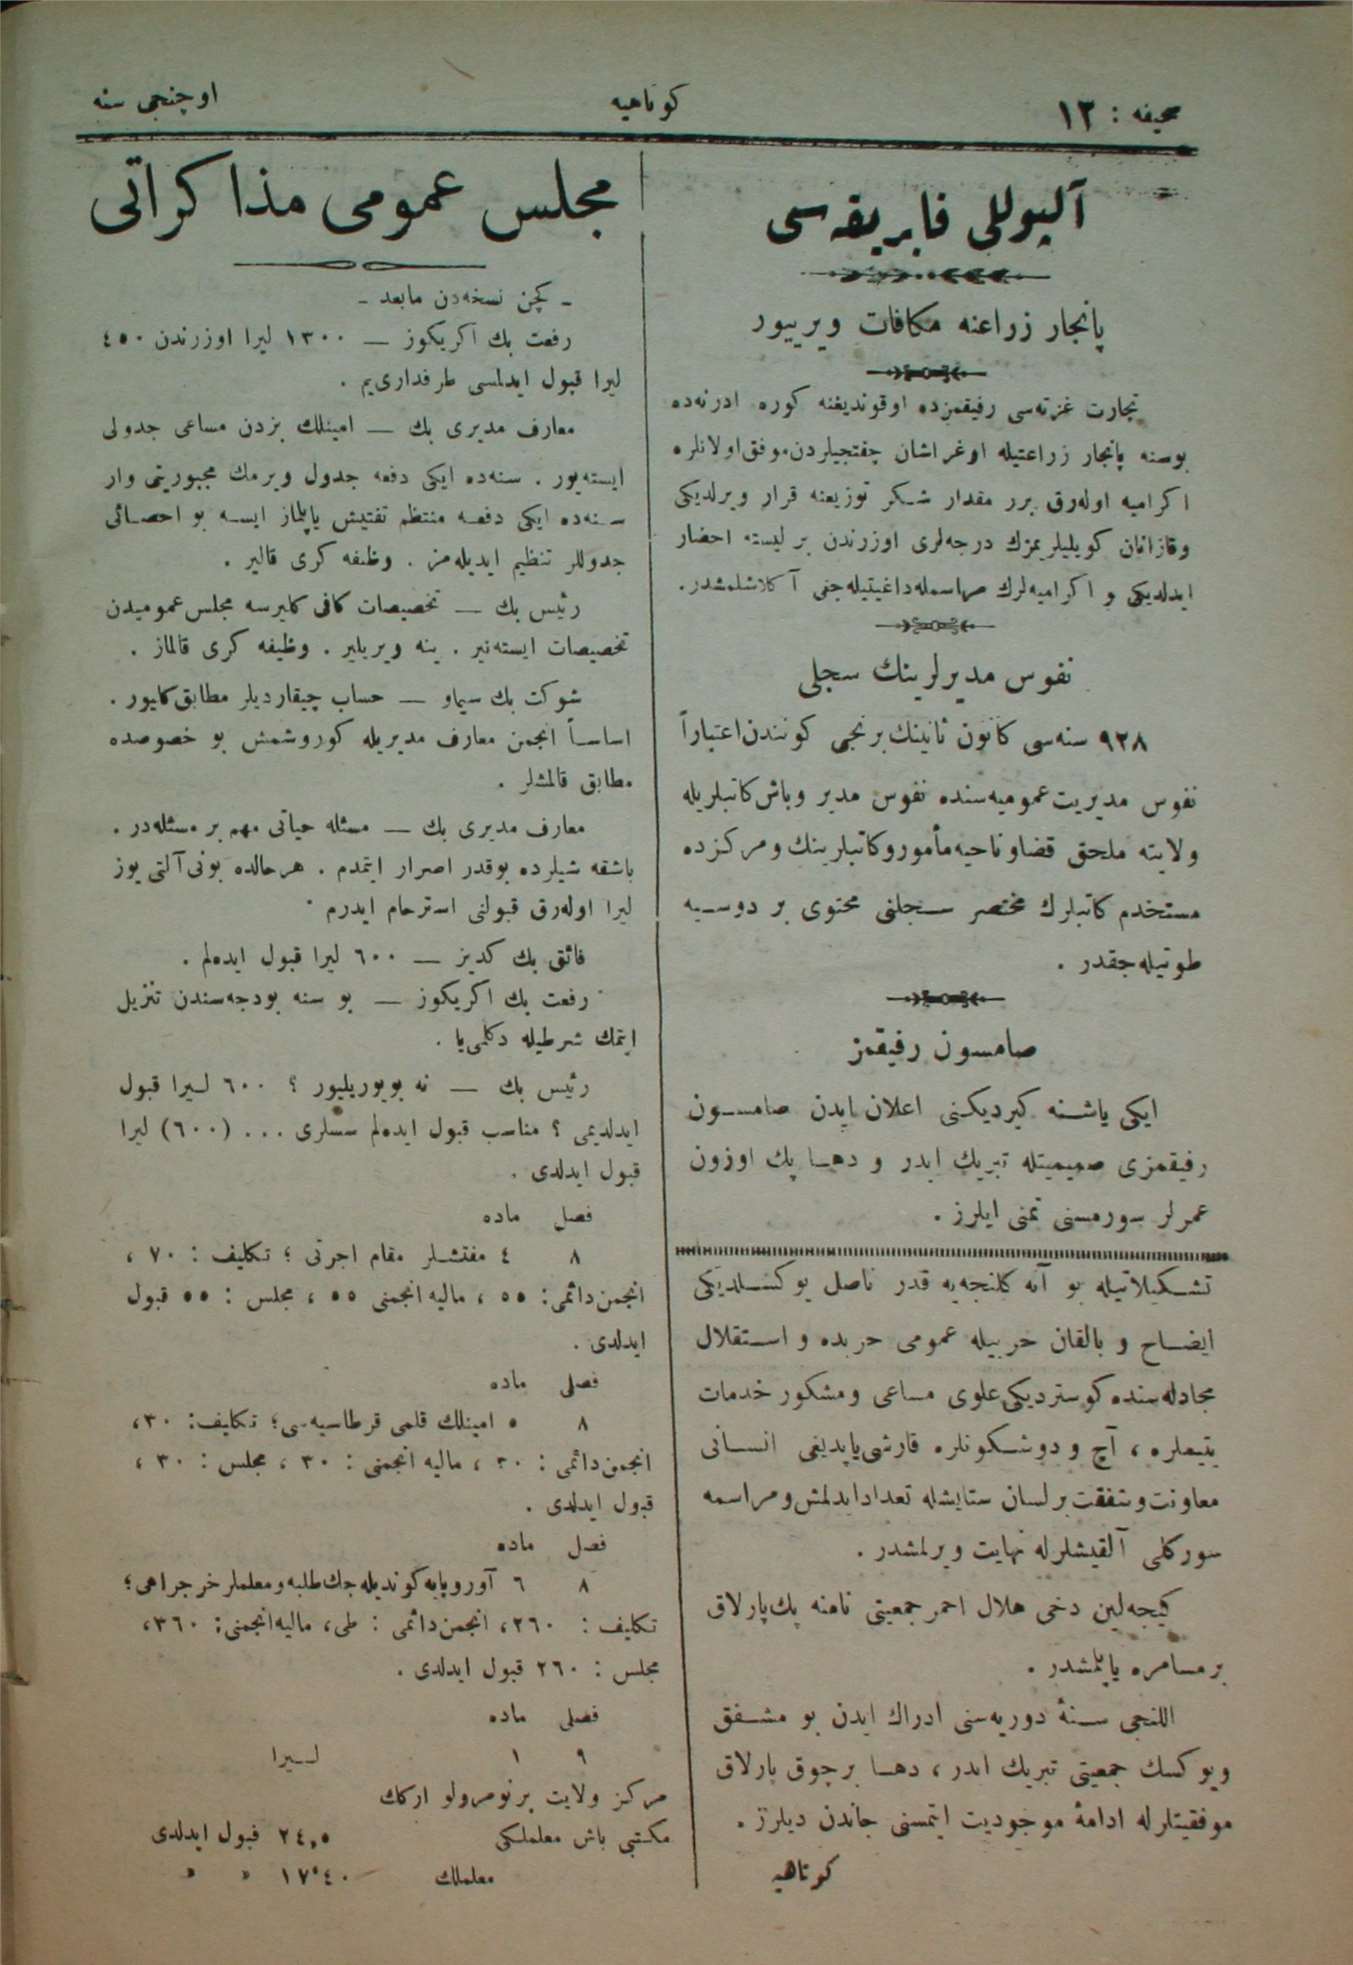 صحيفه : ١٢
كوتاهيه
اوچنجى سنه
آلپوللى فابريقه‌سى
پانجار زراعنه مكافات ويرييور
تجارت غزته‌سى رفيقمزده اوقونديغنه كوره ادرنه‌ده
بوسنه پانجار زراعتيله اوغراشان چفتجيلردن موفق اولانلره
اكراميه اوله‌رق برر مقدار شكر توزيعنه قرار ويرلديكى
وقازانان كويليلريمزك درجه‌لرى اوزرندن بر ليسته احضار
ايدلديكى و اكراميه‌لرك مراسمله داغيتيله‌جغى آكلاشلمشدر.
نفوس مديرلرينك سجلى
٩٢٨ سنه‌سى كانون ثانينك برنجى كونندن اعتباراً
نفوس مديريت عموميه‌سنده نفوس مدير وباش كاتبلريله
ولايته ملحق قضاو ناحيه مأمور وكاتبلرينك ومركزده
مستخدم كاتبلرك مختصر سجلنى محتوى بر دوسيه
طوتيله‌جقدر .
صامسون رفيقمز
ايكى ياشنه كيرديكنى اعلان ايدن صامسون
رفيقمزى صميميتله تبريك ايدر و دها پك اوزون
عمرلر سورمسنى تمنى ايلرز .
تشكيلاتيله بو آنه كلنجه‌يه قدر ناصل يوكسلديكى
ايضاح و بالقان حربيله عمومى حربده و استقلال
مجادله‌سنده كوسترديكى علوى مساعى ومشكور خدمات
يتيملره ، آچ و دوشكونلره قارشى ياپديغى انسانى
معاونت وشفقت بر لسان ستايشله تعداد ايدلمش ومراسمه
سوركلى آلقيشلرله نهايت ويرلمشدر .
كيجه‌لين دخى هلال احمر جمعيتى نامنه پك پارلاق
بر مسامره ياپلمشدر .
اللنجى سنۀ دوريه‌سنى ادراك ايدن بو مشفق
ويوكسك جمعيتى تبريك ايدر ، دها برچوق پارلاق
موفقيتلرله ادامۀ موجوديت ايتمسنى جاندن ديلرز .
كوتاهيه
مجلس عمومى مذاكراتى
ـ كچن نسخه‌دن مابعد ـ
رفعت بك اكريكوز — ١٣٠٠ ليرا اوزرندن ٤٥٠
ليرا قبول ايدلمسى طرفدارى‌يم .
معارف مديرى بك — امينلك بزدن مساعى جدولى
ايسته‌يور . سنه‌ده ايكى دفعه جدول ويرمك مجبوريتى وار
سنه‌ده ايكى دفعه منتظم تفتيش ياپيلماز ايسه بو احصائى
جدوللر تنظيم ايديله‌مز . وظيفه كرى قالير .
رئيس بك — تخصيصات كافى كلميرسه مجلس عموميدن
تخصيصات ايسته‌نير . ينه ويريلير . وظيفه كرى قالماز .
شوكت بك سيماو — حساب چيقارديلر مطابق كليور .
اساساً انجمن معارف مديريله كوروشمش بو خصوصده
مطابق قالمشلر .
معارف مديرى بك — مسئله حياتى مهم بر مسئله‌در .
باشقه شيلرده بوقدر اصرار ايتمدم . هرحالده بونى آلتى يوز
ليرا اوله‌رق قبولنى استرحام ايدرم .
فائق بك كديز — ٦٠٠ ليرا قبول ايده‌لم .
رفعت بك اكريكوز — بو سنه بودجه‌سندن تنزيل
ايتمك شرطيله دكلمى‌يا .
رئيس بك — نه بويوريليور ؟ ٦٠٠ ليرا قبول
ايدلديمى ؟ مناسب قبول ايده‌لم سسلرى ... (٦٠٠) ليرا
قبول ايدلدى .
فصل ماده
٨ ٤ مفتشلر مقام اجرتى ؛ تكليف : ٧٠ ،
انجمن دائمى: ٥٥ ، ماليه انجمنى ٥٥ ، مجلس : ٥٥ قبول
ايدلدى .
فصلى ماده
٨ ٥ امينلك قلمى قرطاسيه‌سى؛ تكليف: ٣٠،
انجمن دائمى : ٣٠ ، ماليه انجمنى : ٣٠ ، مجلس : ٣٠ ،
قبول ايدلدى .
فصل ماده
٨ ٦ آوروپايه كونديله‌جك طلبه ومعلملر خرجراهى؛
تكليف : ٢٦٠، انجمن دائمى : طى، ماليه انجمنى: ٣٦٠،
مجلس : ٢٦٠ قبول ايدلدى .
فصلى ماده
٩ ١ ليرا
مركز ولايت برنومرولو اركك
مكتبى باش معلملكى ٢٤,٥ قبول ايدلدى
معلملك ١٧٫٤٠ » »